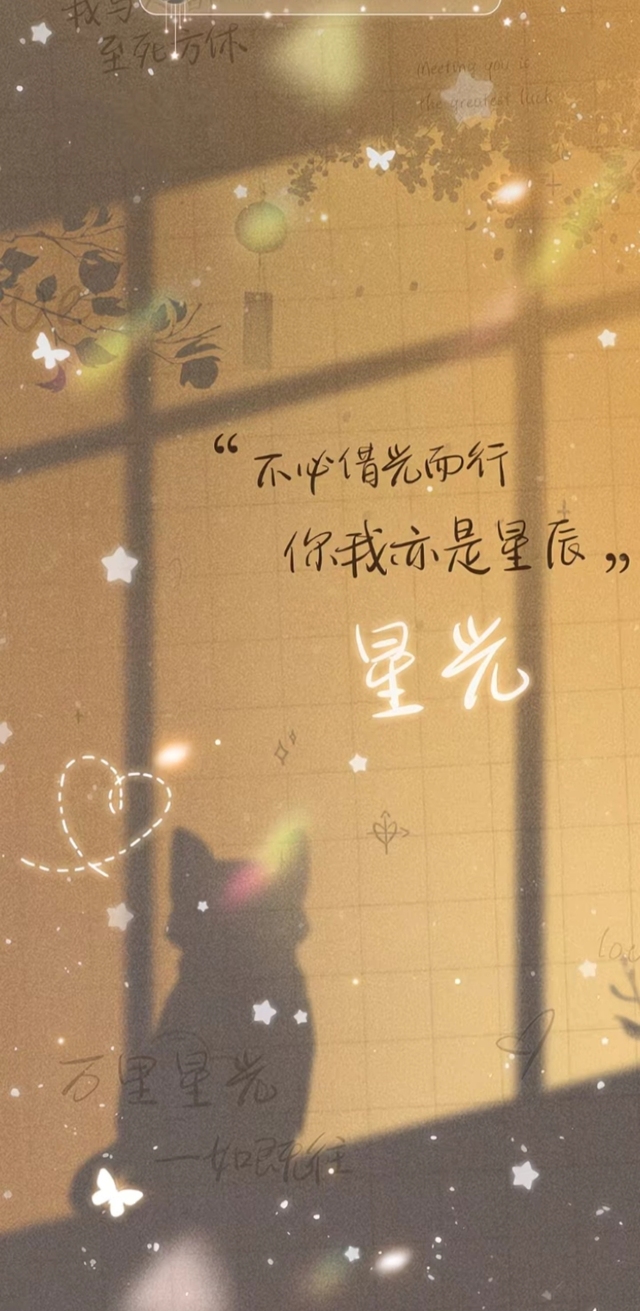 我与
至死方休
Meeting you is
the greatest luck
“不必借光而行
你我亦是星辰”
星光
Love
万里星光
一如既往